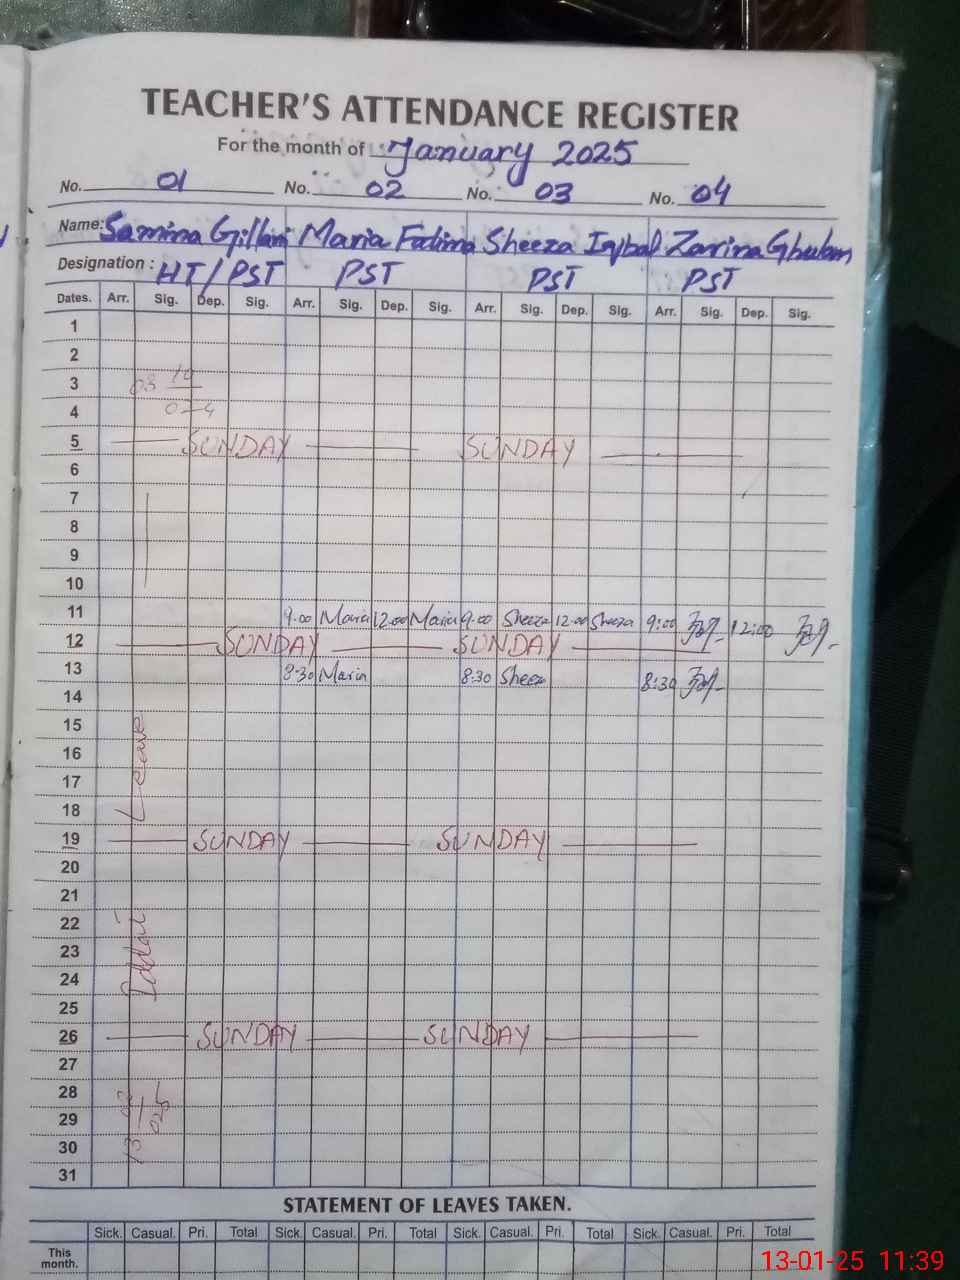 TEACHER'S ATTENDANCE REGISTER
For the month of January 2025
No. 01 No. 02 No. 03 No. 04
Name: Samina Gillani Maria Fatima Sheeza Iqbal Zarina Ghulam
Designation: HT/PST PST PST PST
Dates. Arr. Sig. Dep. Sig. Arr. Sig. Dep. Sig. Arr. Sig. Dep. Sig. Arr. Sig. Dep. Sig.
1
2
3
4
5 SUNDAY SUNDAY
6
7
8
9
10
11 9.00 Maria 12.00 Maria 9.00 Sheeza 12.00 Sheeza 9:00 12:00
12 SUNDAY SUNDAY
13 8:30 Maria 8:30 Sheeza 8:30
14
15
16
17
18
Leave
19 SUNDAY SUNDAY
20
21
22
23
24
Iddat
25
26 SUNDAY SUNDAY
27
28
29
30
31
STATEMENT OF LEAVES TAKEN.
Sick. Casual. Pri. Total Sick. Casual. Pri. Total Sick. Casual. Pri. Total Sick. Casual. Pri. Total
This month.
13-01-25 11:39